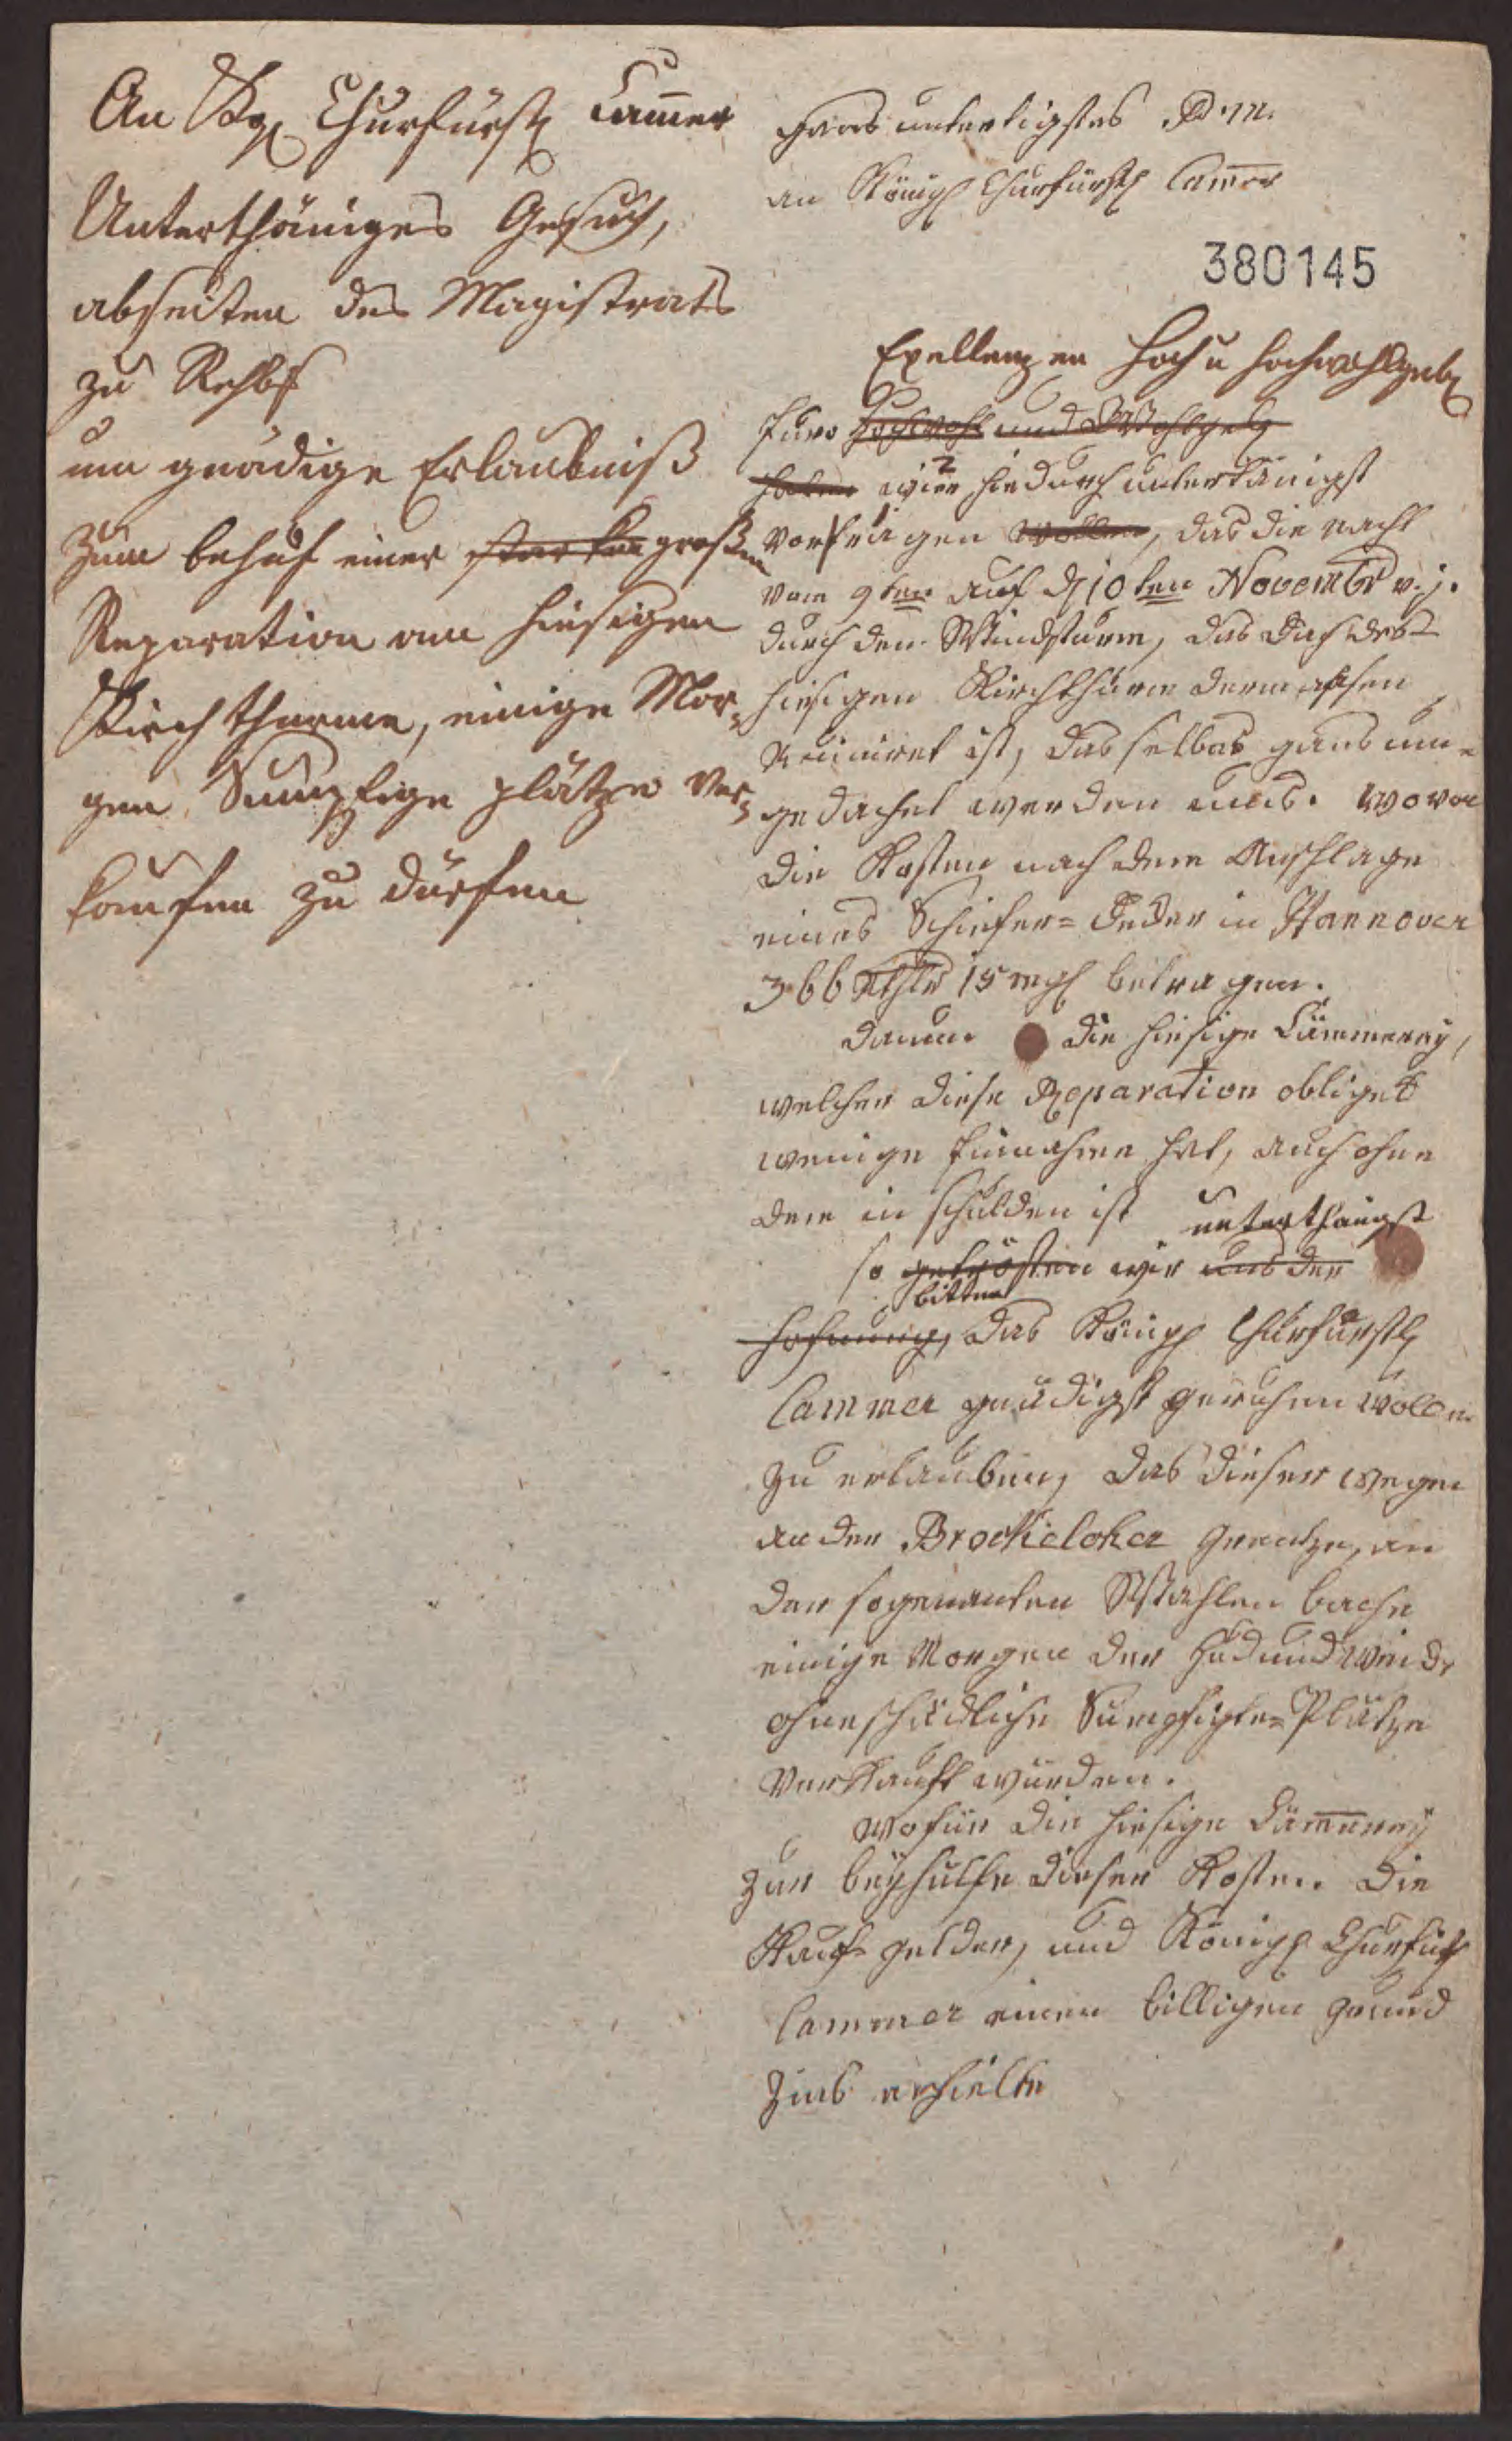 An Kgl Churfürstl Cammer
Unterthäniges Gesuch,
abseiten des Magistrats
zu Rehbg
um gnädige Erlaubniß
zum behuf einer starken großen
Reparation am hiesigen
Kirchthurme, einige Mor-
gen Sumpfige plätze ver-
kaufen zu dürfen
untertigstes P.M.
an Königl Churfürstl Cammer
380145
Exellenzen Hoch u Hochwohlgeb
Euro Hochwohl und Wohlgeb
haben wir 2 hiedurch untertänigst
vorfragen 1 wollen, das die nacht
vom 9ten auf d 10ten Novembr v. j.
durch den Windsturm, das Dach des
hiesigen Kirchthurm dermassen
Ruiniret ist, das selbes ganz um-
gedachet werden mus. wovon
die Kosten nach dem Anschlage
eines Schiefer-Decker in Hannover
366 Rthlr 15 mgl betragen.
Dann die hiesige Cämmerey,
welcher diese Reparation obliget
wenige Einnahme hat, auch ohne
dem in schulden ist unterthänigst
so getrösten wir uns der
bitten
Hofnung, das Königl Churfürstl
Cammer gnädigst geruhen wollen
zu erlauben, das dieser wegen
an der Brockeloher Grentze, an
der sogenanten Stahlen bache
einige Morgen der Hud und weide
ohnschädliche Sumpfigte-Plätze
verkauft würden.
wofür die hiesige Cämmerey
zur beyhülfe dieser Kosten die
Kauf-gelder, und Königl Churfürstl
Cammer einen billigen Grund
Zins erhielte